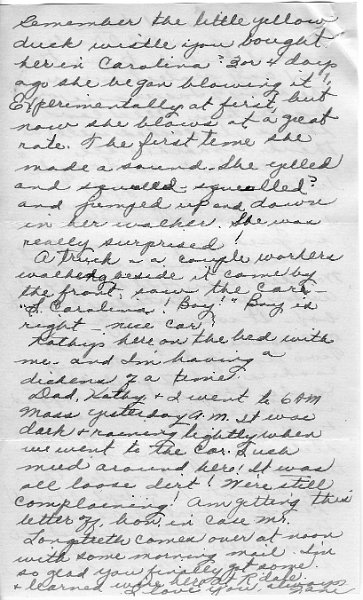 Remember the little yellow
duck wistle you bought
her in Carolina? 3 or 4 days
ago she began blowing it!
Experimentally at first, but
now she blows at a great
rate. The first time she
made a sound - She yelled
and squalled - squealled?
and jumped up and down
in her walker. She was
really surprised!
A truck - a couple workers
walking beside it come by
the front, saw the car -
"S. Carolina! Boy!" Boy is
right - nice car!
Kathy's here on the bed with
me - and I'm having a
dickens of a time.
Dad, Kathy & I went to 6 AM
Mass yesterday A.M. It was
dark & raining lightly when
we went to the car. Such
mud around here! It was
all loose dirt! We're still
complaining! Am getting this
letter off now in case Mr.
Longteeth comes over at noon
with some morning mail. I'm
so glad you finally got some
& learned we're here
I love you always